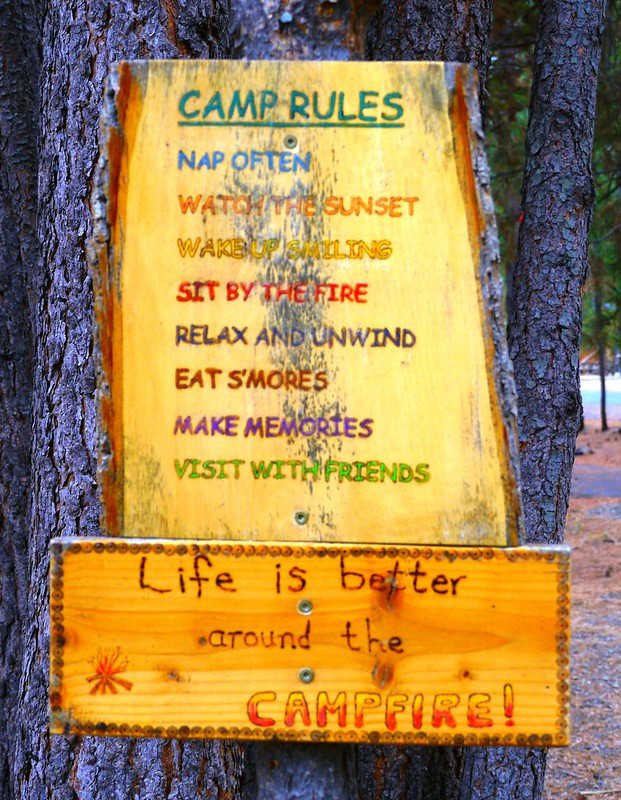 CAMP RULES
NAP OFTEN
WATCH THE SUNSET
WAKE UP SMILING
SIT BY THE FIRE
RELAX AND UNWIND
EAT S'MORES
MAKE MEMORIES
VISIT WITH FRIENDS
Life is better
around the
CAMPFIRE!